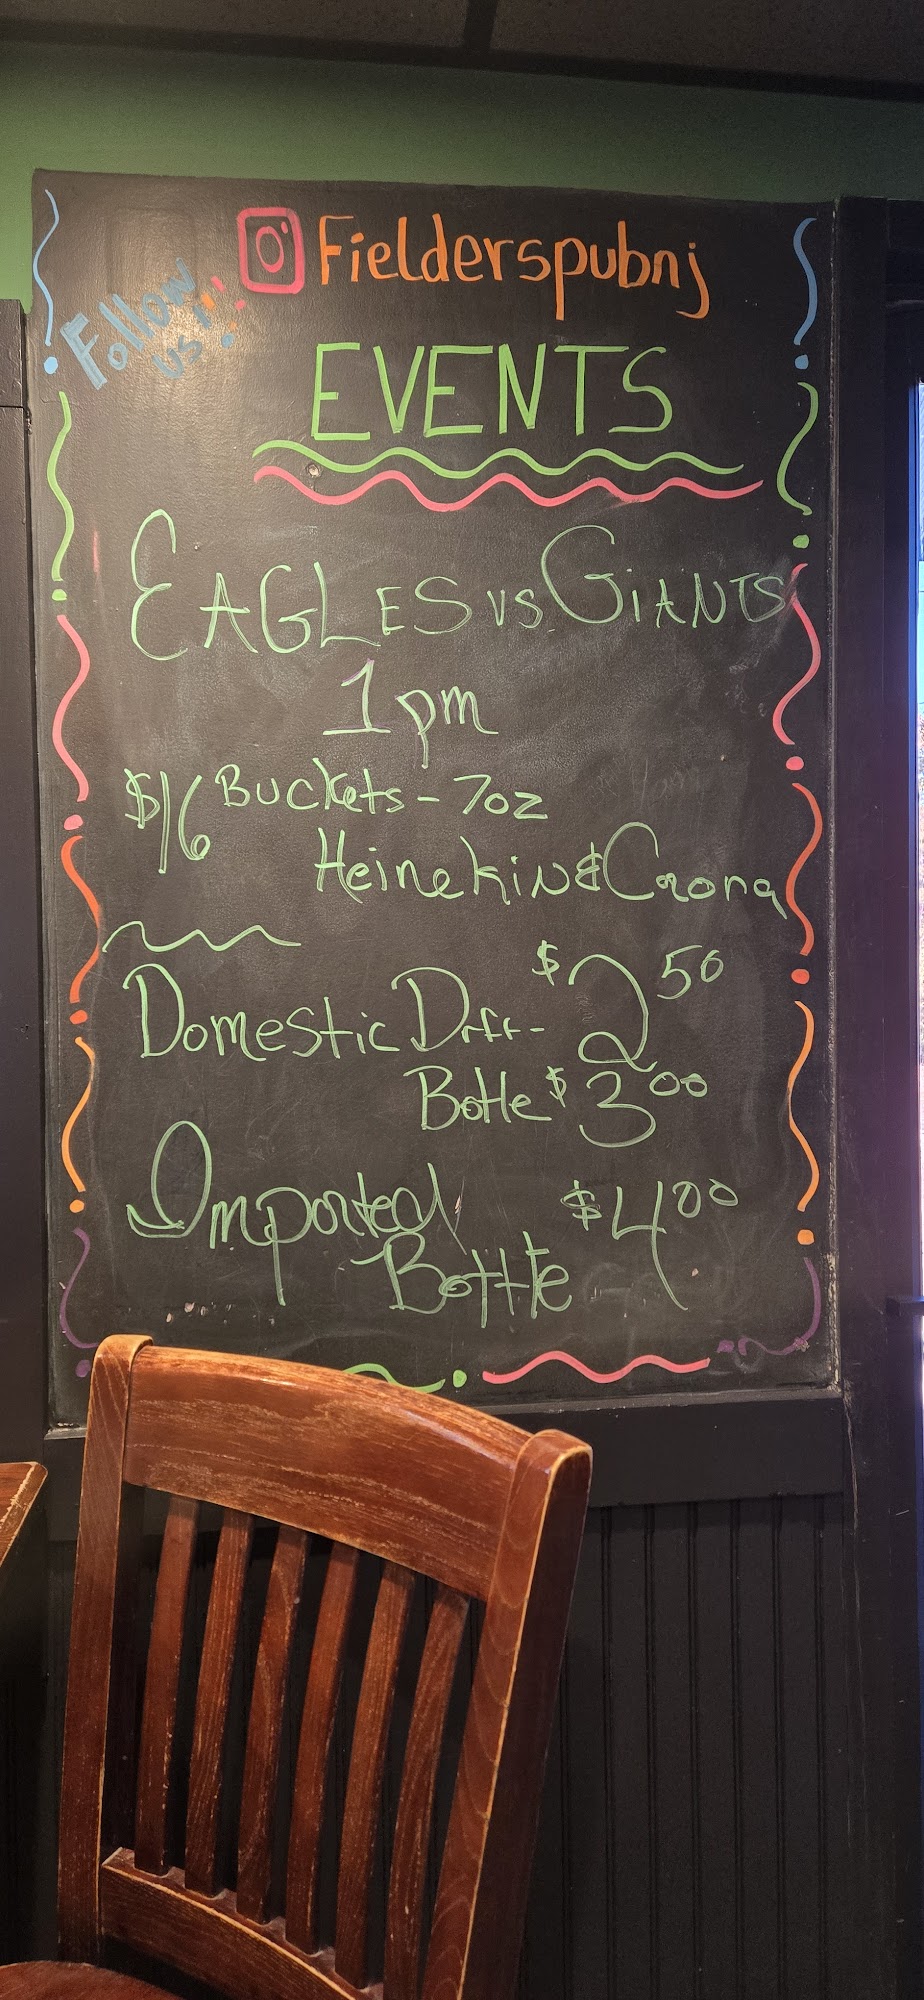 Fielderspubnj
Follow
us!
EVENTS
EAGLES vs GiANTS
1pm
$16 Buckets - 7oz
Heinekin & Corona
Domestic Drft - $2.50
Bottle $3.00
Imported $4.00
Bottle